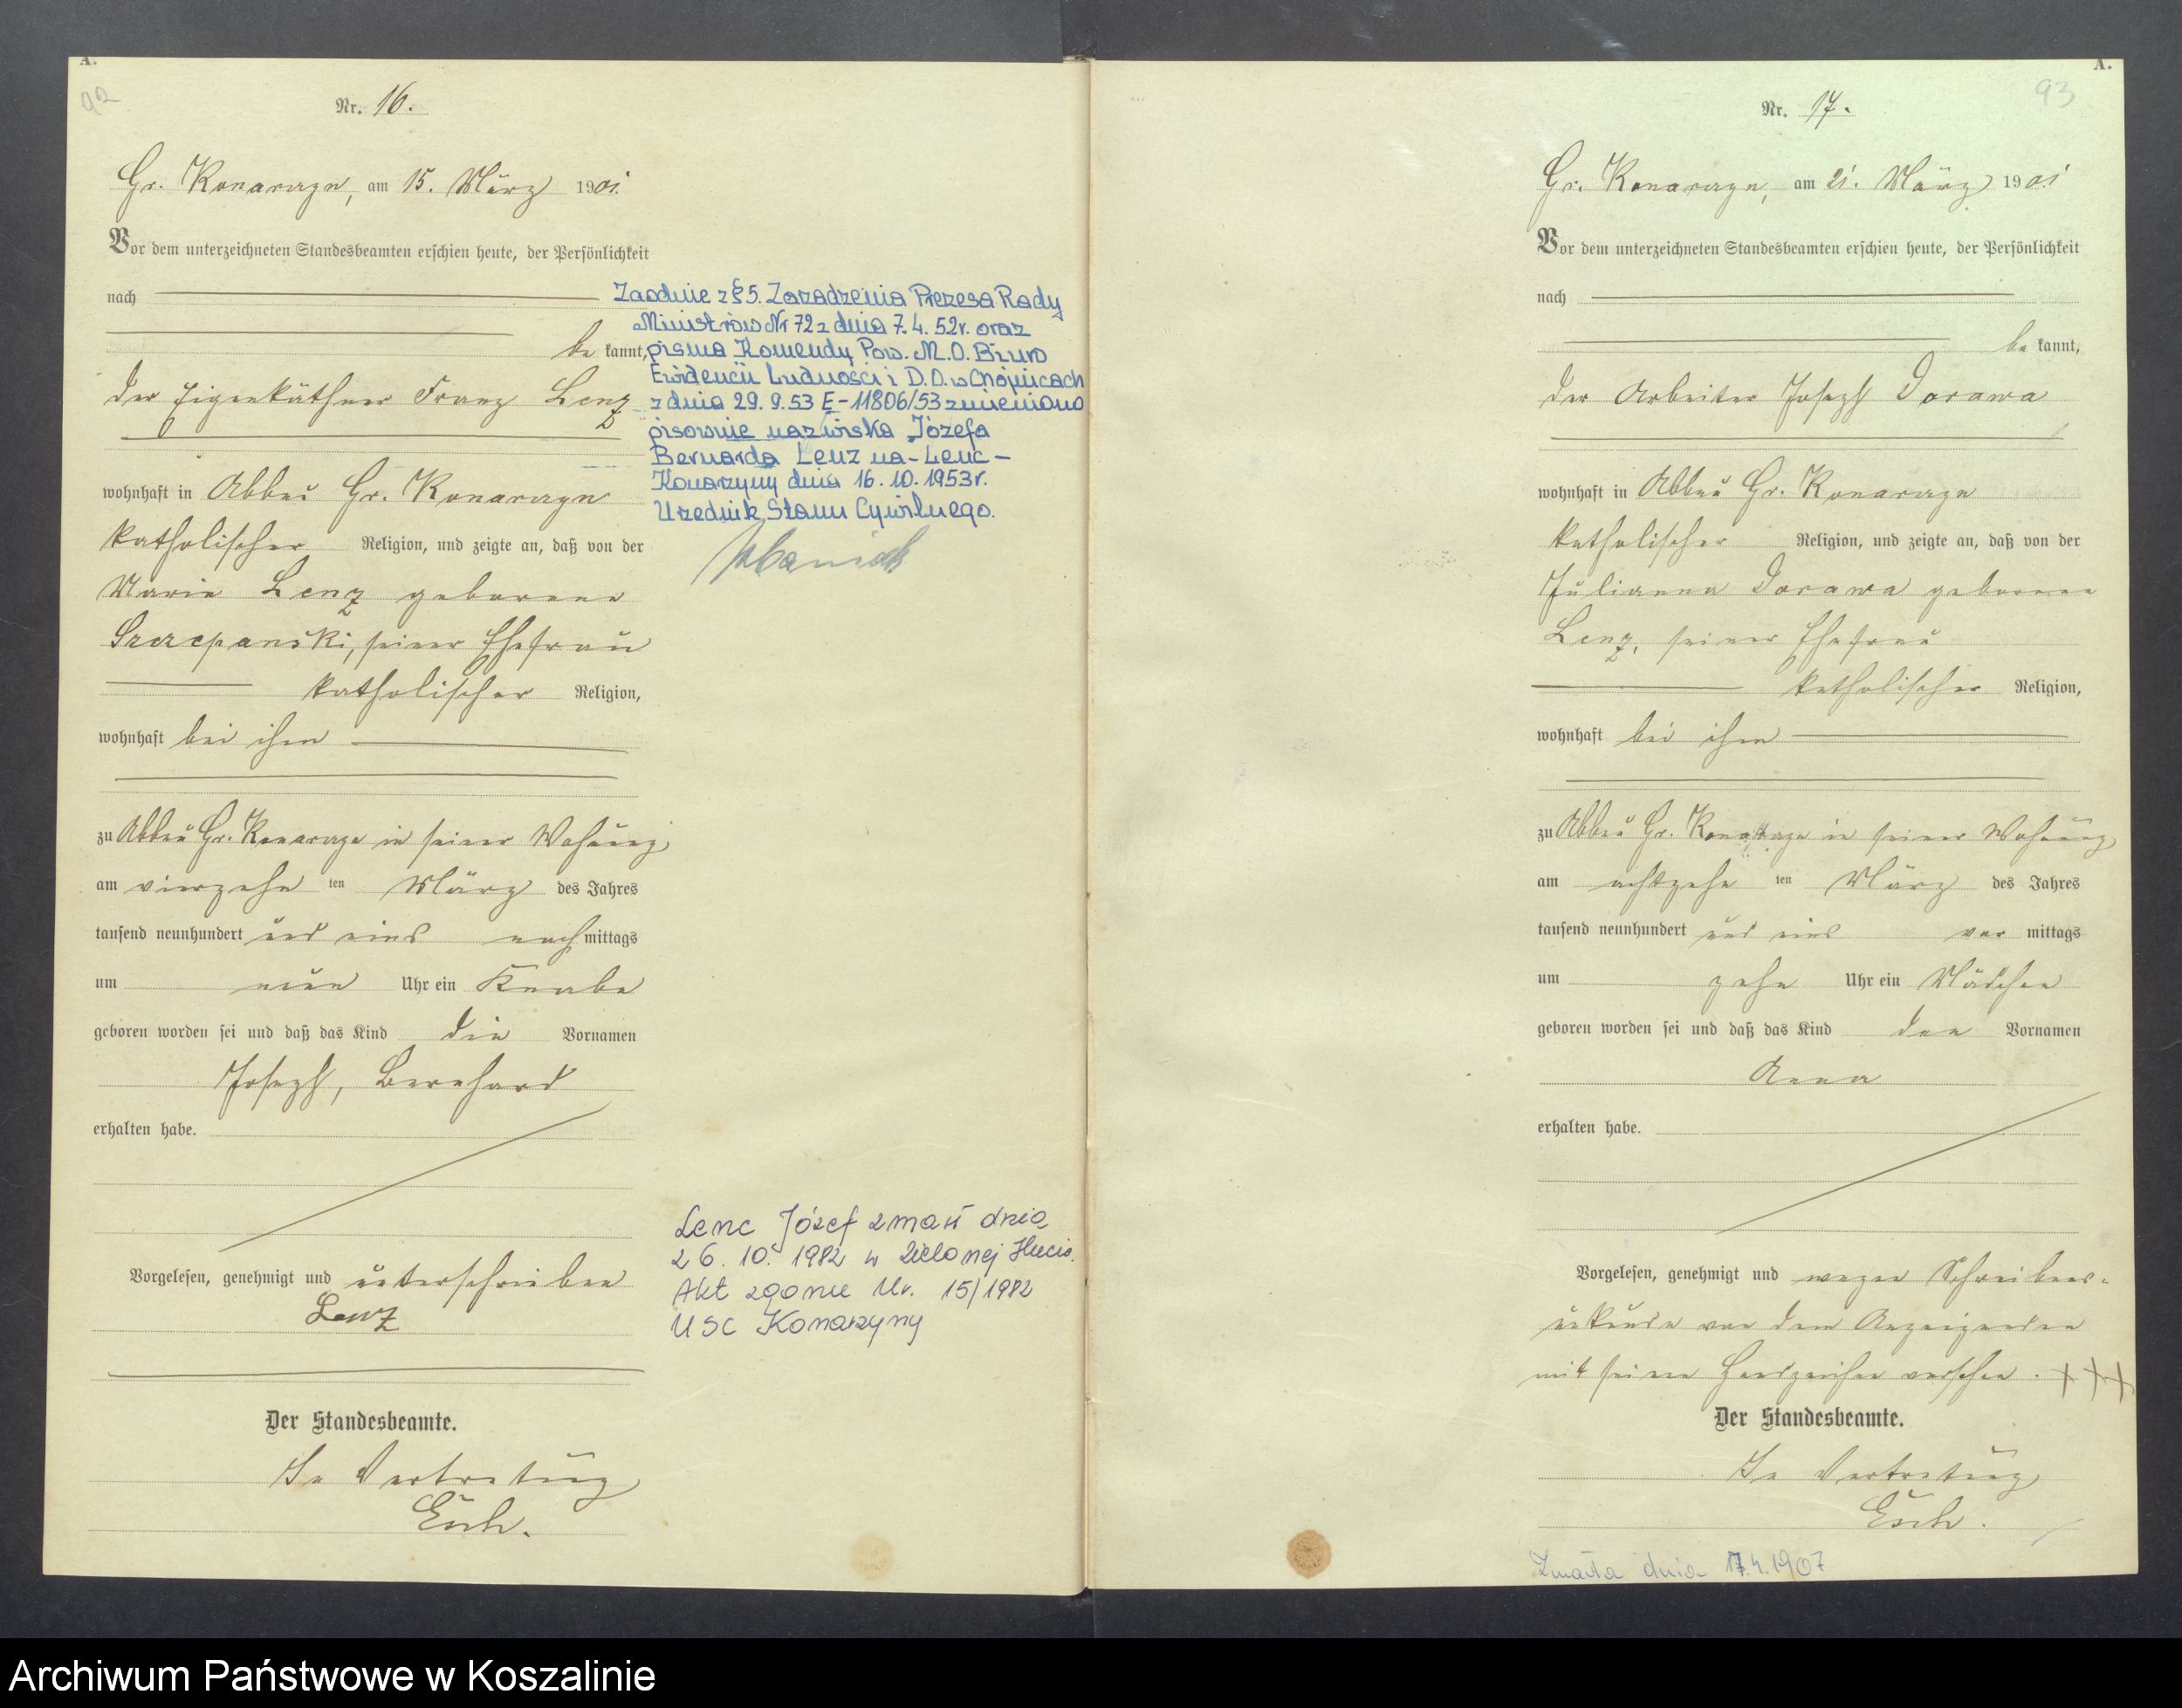 A.
92
Nr. 16.
Gr. Konarczyn, am 15. März 1901.
Vor dem unterzeichneten Standesbeamten erschien heute, der Persönlichkeit
nach
be kannt,
der Eigenkäthner Franz Lenz
wohnhaft in Abbau Gr. Konarczyn
katholischer Religion, und zeigte an, daß von der
Marie Lenz geborene
Szczepanski, seiner Ehefrau
katholischer Religion,
wohnhaft bei ihm
zu Abbau Gr. Konarczyn in seiner Wohnung
am vierzehn ten März des Jahres
tausend neunhundert und eins nach mittags
um neun Uhr ein Knabe
geboren worden sei und daß das Kind die Vornamen
Joseph, Bernhard
erhalten habe.
Vorgelesen, genehmigt und unterschrieben
Lenz
Der Standesbeamte.
In Vertretung
Zgodnie z § 5. Zarządzenia Prezesa Rady
Ministrów Nr 72 z dnia 7.4.52r. oraz
pisma Komendy Pow. M.O. Biuro
Ewidencji Ludności i D.O. w Chojnicach
z dnia 29.9.53 E-11806/53 zmieniono
pisownię nazwiska Józefa
Bernarda Lenz na - Lenc -
Konarzyny dnia 16.10.1953r.
Urzędnik Stanu Cywilnego.
Lenc Józef zmarł dnia
26.10.1982 w Zielonej Hucie.
Akt zgonu Nr. 15/1982
USC Konarzyny
A.
93
Nr. 17.
Gr. Konarczyn, am 21. März 1901
Vor dem unterzeichneten Standesbeamten erschien heute, der Persönlichkeit
nach
be kannt,
der Arbeiter Joseph Dorawa
wohnhaft in Abbau Gr. Konarczyn
katholischer Religion, und zeigte an, daß von der
Julianna Dorawa geborenen
Lenz, seiner Ehefrau
katholischer Religion,
wohnhaft bei ihm
zu Abbau Gr. Konarczyn in seiner Wohnung
am achtzehn ten März des Jahres
tausend neunhundert und eins vor mittags
um zehn Uhr ein Mädchen
geboren worden sei und daß das Kind den Vornamen
Anna
erhalten habe.
Vorgelesen, genehmigt und wegen Schreibens-
unkunde von dem Anzeigenden
mit seinem Handzeichen versehen. +++
Der Standesbeamte.
In Vertretung
Zmarła dnia 17.4.1907
Archiwum Państwowe w Koszalinie